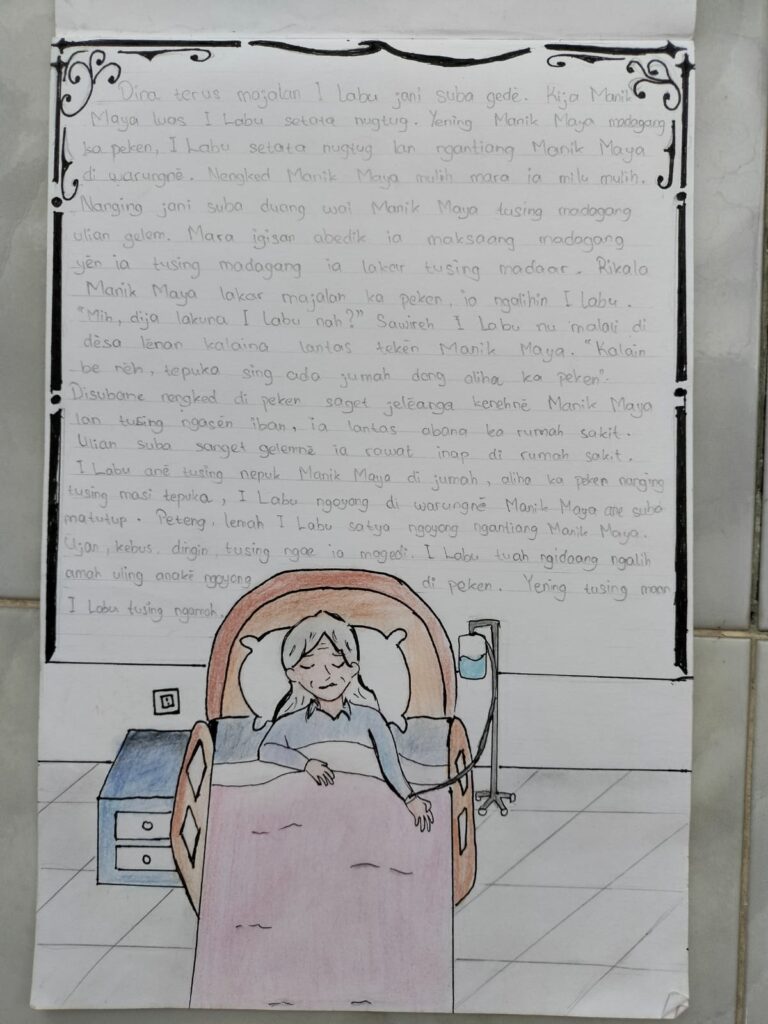 Dina terus majalan I Labu jani suba gedé. Kija Manik
Maya luas I Labu setata nugtug. Yening Manik Maya madagang
ka peken, I Labu setata nugtug lan ngantiang Manik Maya
di warungné. Nengked Manik Maya mulih mara ia milu mulih.
Nanging jani suba duang wai Manik Maya tusing madagang
ulian gelem. Mara igisan abedik ia maksaang madagang
yén ia tusing madagang ia lakar tusing madaar. Rikala
Manik Maya lakar majalan ka peken, ia ngalihin I Labu.
"Mih, dija lakuna I Labu nah?" Sawireh I Labu nu malali di
désa lénan kalaina lantas tekén Manik Maya. "Kalain
be néh, tepuka sing ada jumah dong aliha ka peken".
Disubane nengked di peken saget jeléanga kenehné Manik Maya
lan tusing ngasén iban, ia lantas abana ka rumah sakit.
Ulian suba sanget gelemné ia rawat inap di rumah sakit.
I Labu ané tusing nepuk Manik Maya di jumah, aliha ka peken nanging
tusing masi tepuka, I Labu ngoyong di warungné Manik Maya ane suba
matutup. Peteng, lemah I Labu satya ngoyong ngantiang Manik Maya.
Ujan, kebus, dingin, tusing ngae ia magedi. I Labu tuah ngidaang ngalih
amah uling anaké ngoyong di peken. Yening tusing maan
I Labu tusing ngamah.